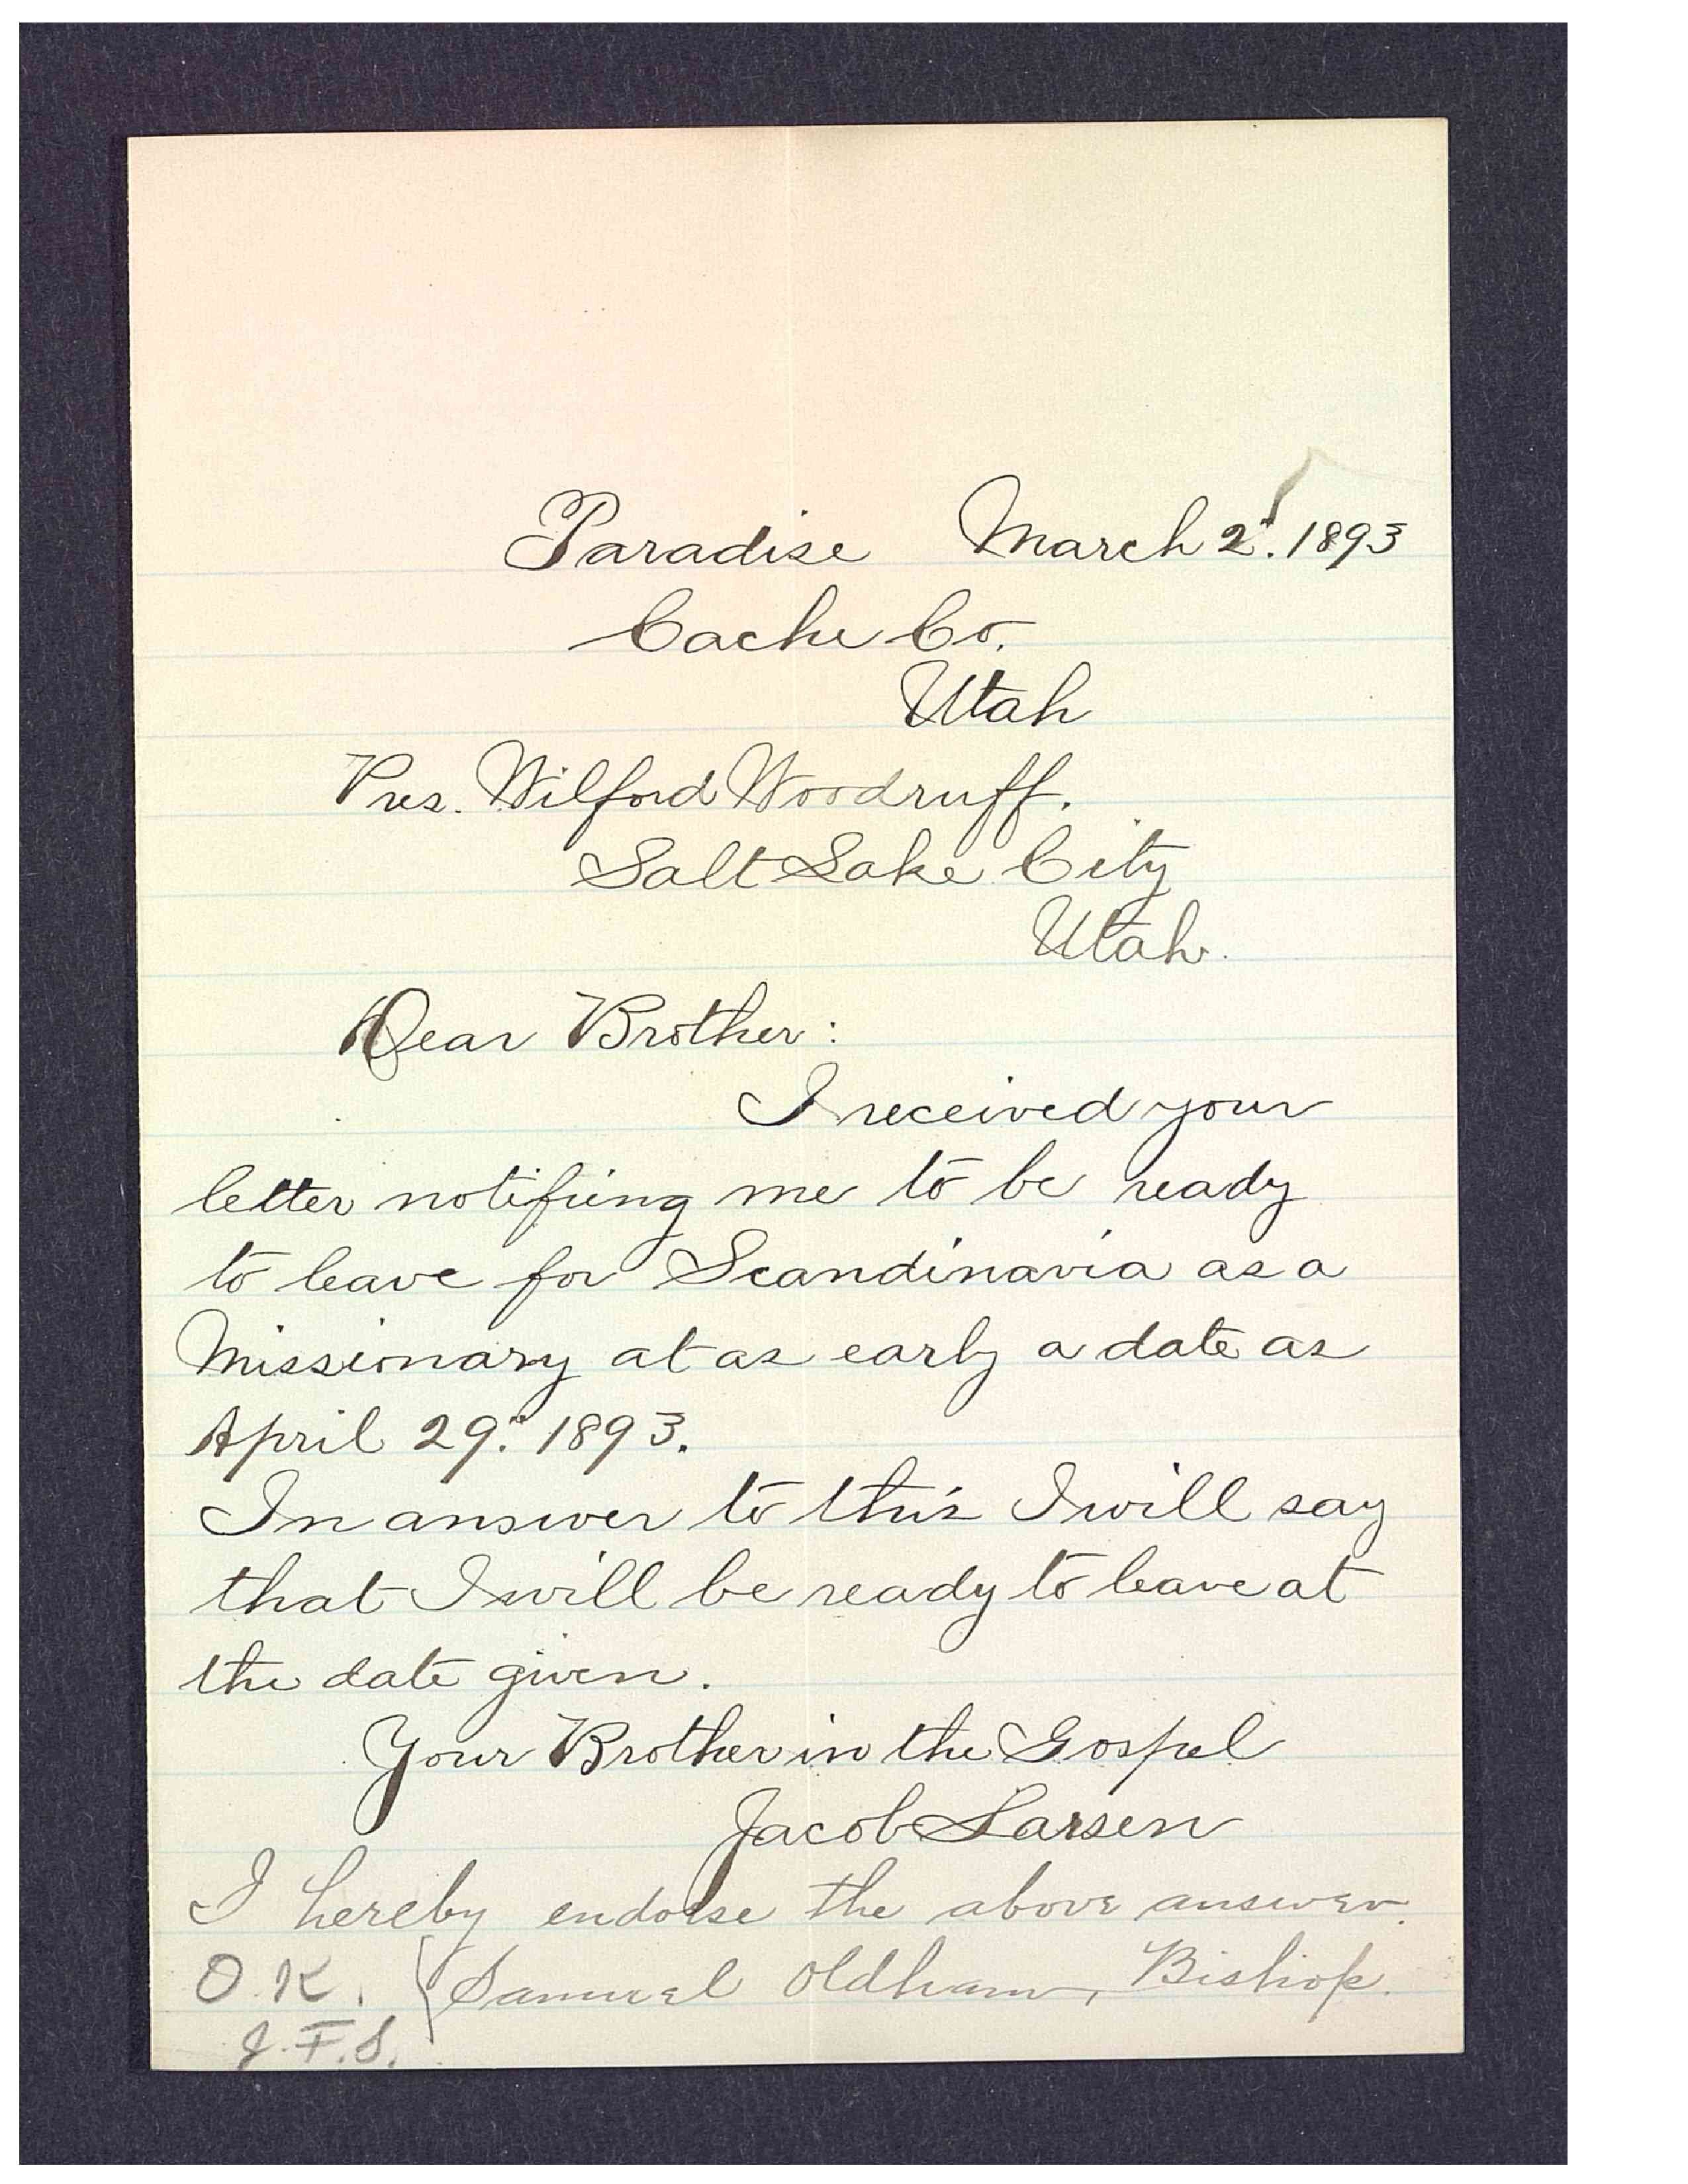 Paradise March 2". 1893
Cache Co.
Utah
Pres. Wilford Woodruff.
Salt Lake City
Utah.
Dear Brother:
I received your
letter notifiing me to be ready
to leave for Scandinavia as a
Missionary at as early a date as
April 29". 1893.
In answer to this I will say
that I will be ready to leave at
the date given.
Your Brother in the Gospel
Jacob Larsen
I hereby endorse the above answer.
O.K. { Samuel Oldham, Bishop.
J.F.S.